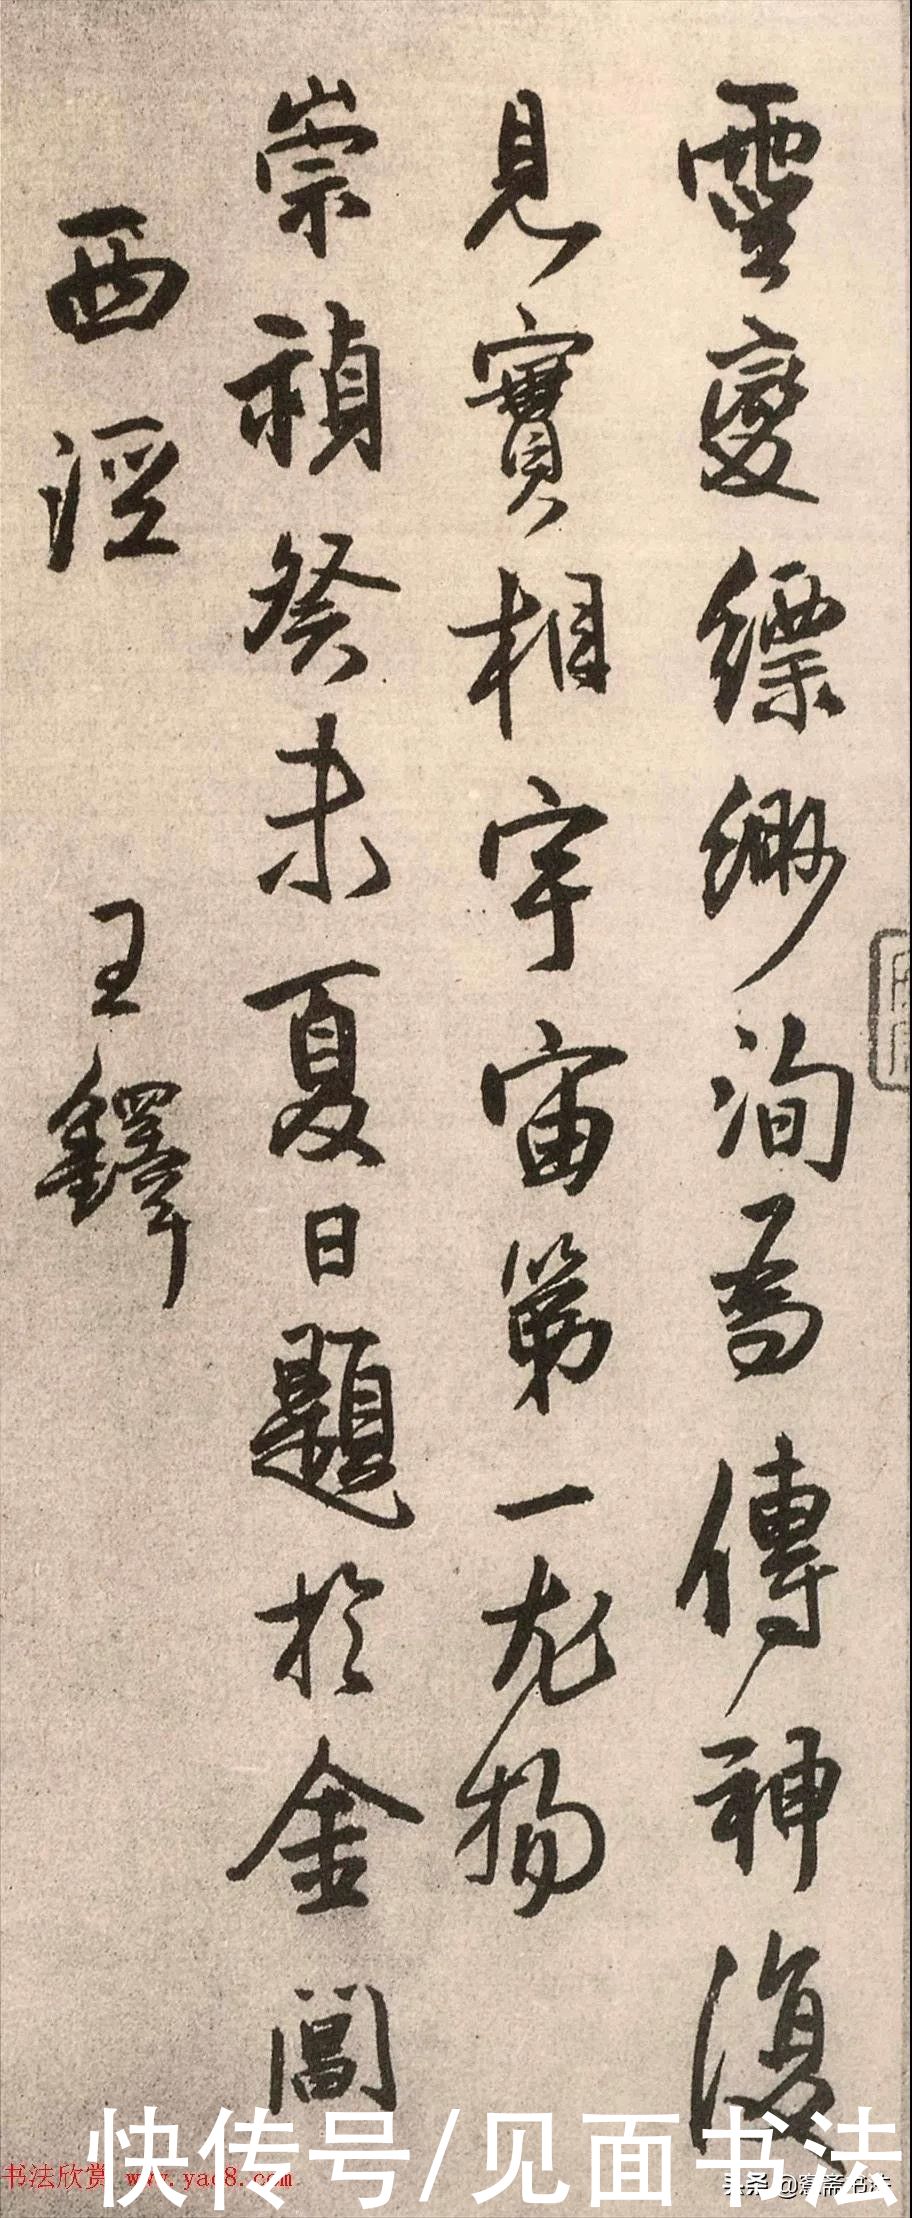 靈變縹緲洵為傳神復
見實相宇宙第一尤物
崇禎癸未夏日題於金閶
西涇 王鐸
快传号/见面书法
书法欣赏 www.yac8.com
头条 @鶱斋书法